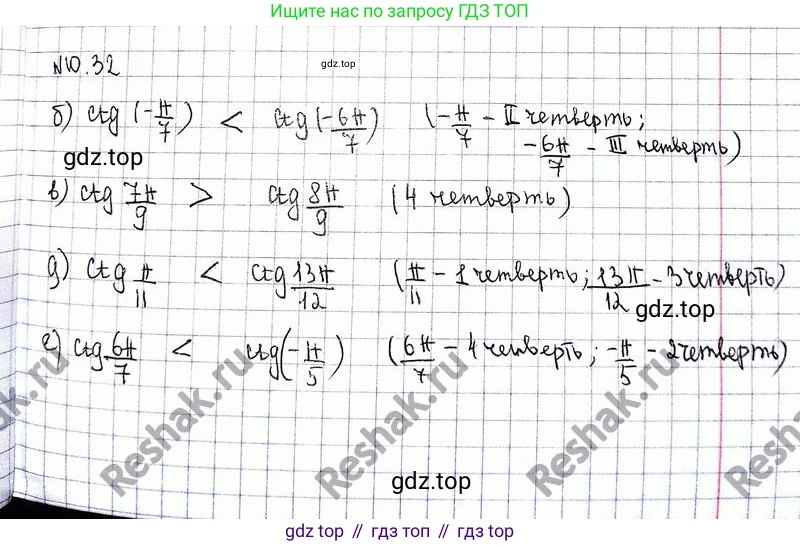 Ищите нас по запросу ГДЗ ТОП
gdz.top
№10.32
б) ctg (-π/7) < ctg (-6π/7) (-π/7 - II четверть;
-6π/7 - III четверть)
gdz.top
в) ctg 7π/9 > ctg 8π/9 (4 четверть)
д) ctg π/11 < ctg 13π/12 (π/11 - 1 четверть; 13π/12 - 3 четверть)
gdz.top
е) ctg 6π/7 < ctg (-π/5) (6π/7 - 4 четверть; -π/5 - 2 четверть)
Reshak.ru
Reshak.ru
Reshak.ru
gdz.top
gdz top // гдз топ // gdz top